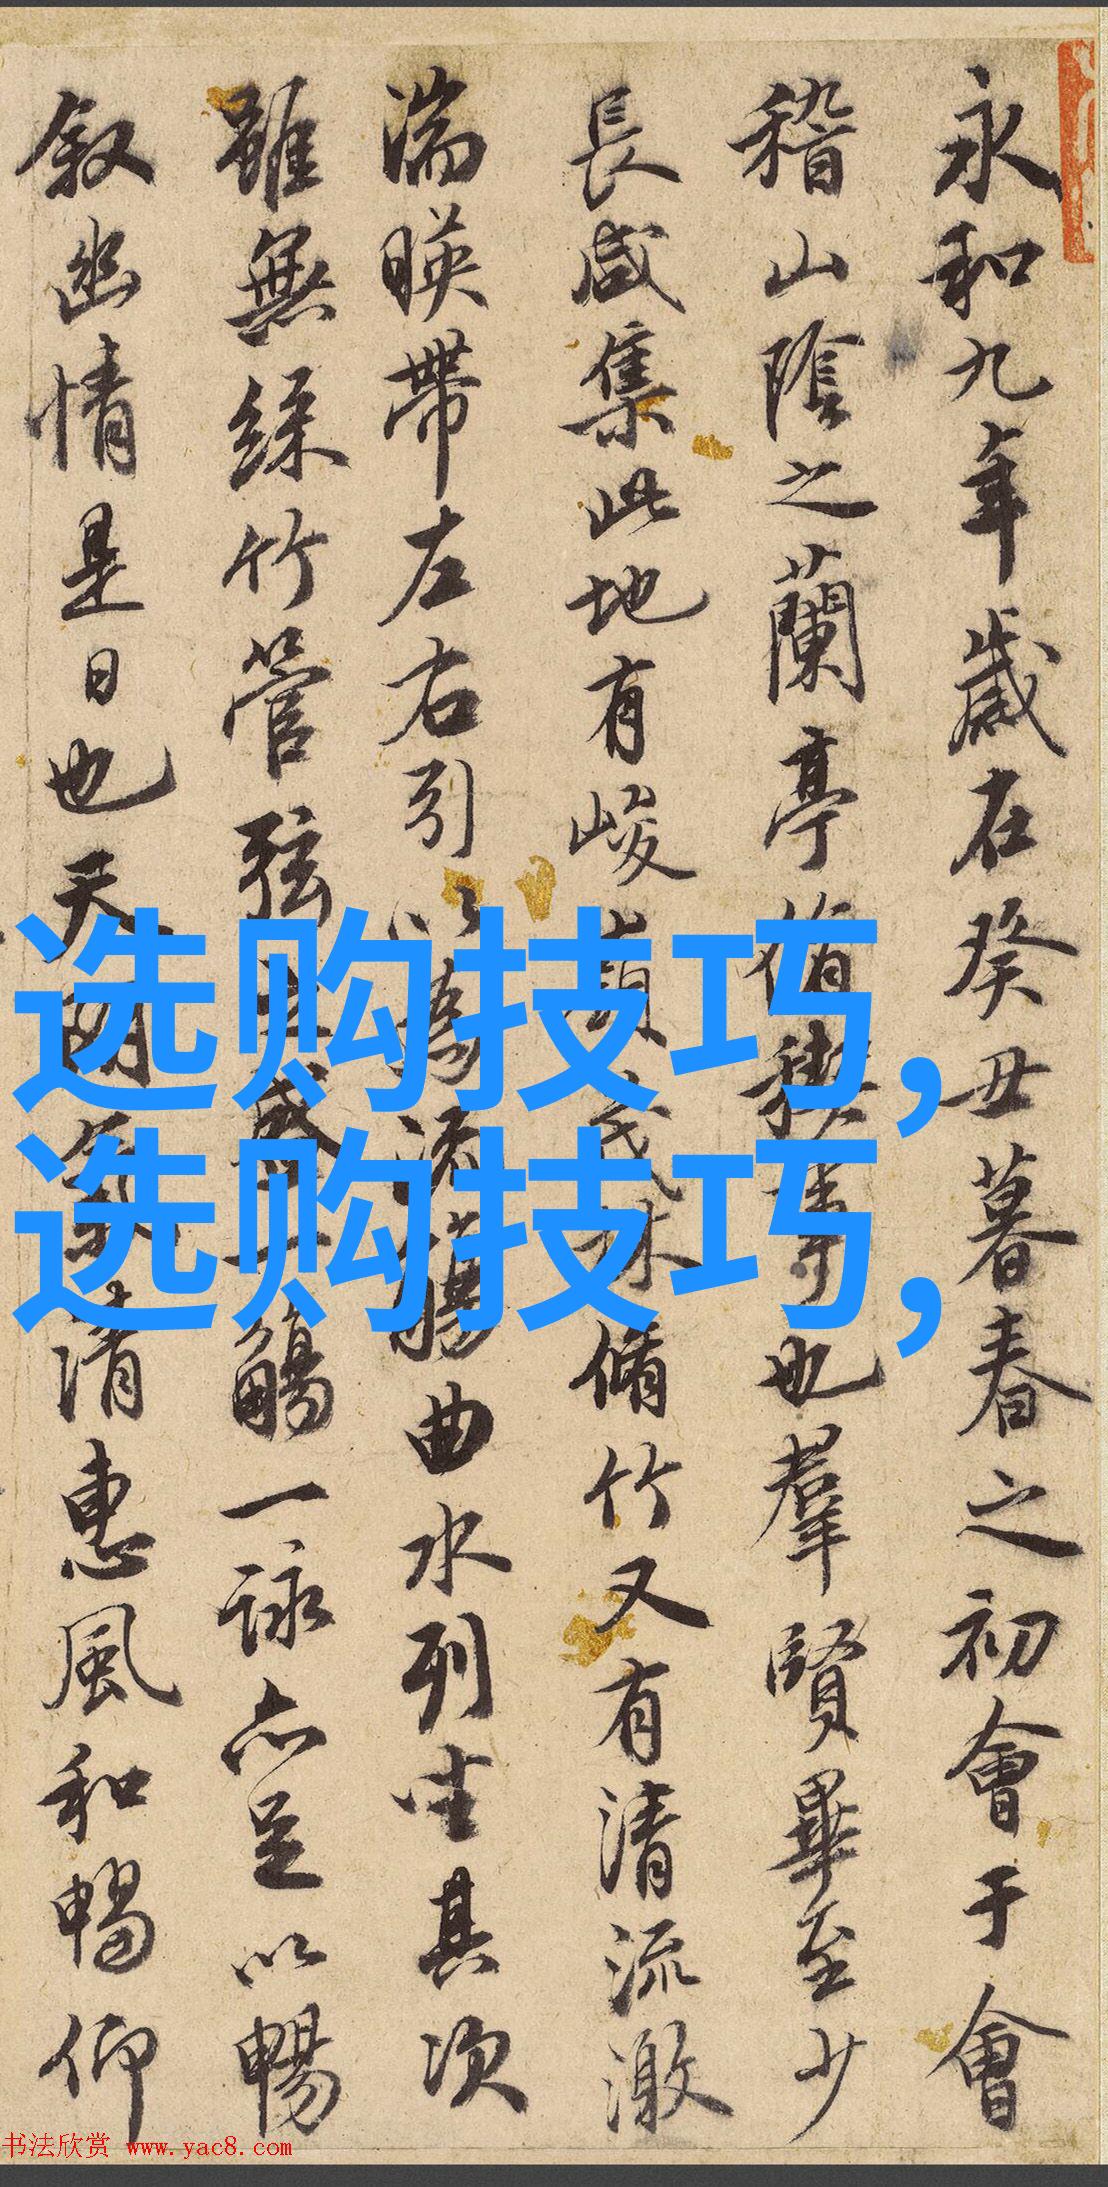 永和九年歲在癸丑暮春之初會于會
稽山陰之蘭亭脩稧事也羣賢畢至少
長咸集此地有峻嶺茂林脩竹又有清流激
湍暎帶左右引以為流觴曲水列坐其次
雖無絲竹管弦之盛一觴一詠亦足以暢
叙幽情是日也天朗氣清惠風和暢仰
选购技巧,
选购技巧,
书法欣赏 www.yac8.com